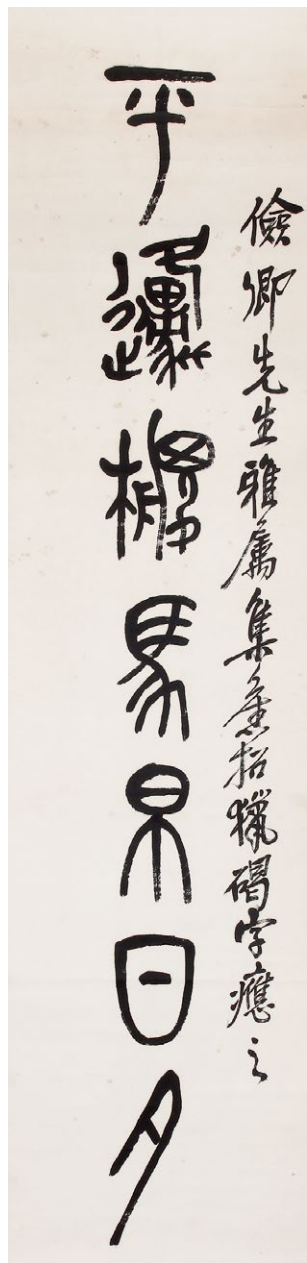 儉卿先生雅屬集舊拓獵碣字應之
平邍馬日夕